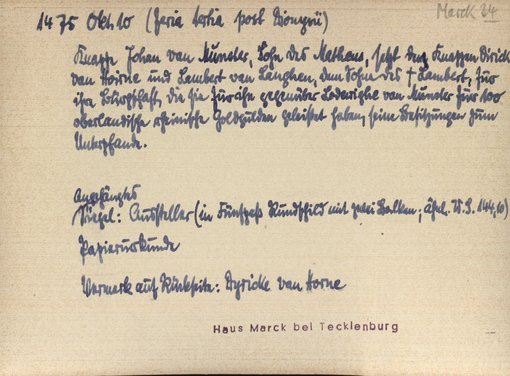 Marck 24
1475 Okt. 10 (feria tertia post Dionysii)
Knappe Johan van Munster, Sohn des Matheus, setzt den Knappen Dirick
van Hoirne und Lambert van Langhen, dem Sohn des † Lambert, für
ihre Bürgschaft, die sie für ihn gegenüber van Munster für 100
oberländische rheinische Goldgulden geleistet haben, seine Besitzungen zum
Unterpfande.
Angehängtes
Siegel: Aussteller (in Fünfpaß Rundschild mit zwei Balken; ähnl. W.S. 144,10)
Papierurkunde
Vermerk auf Rückseite: Dyricke van Horne
Haus Marck bei Tecklenburg